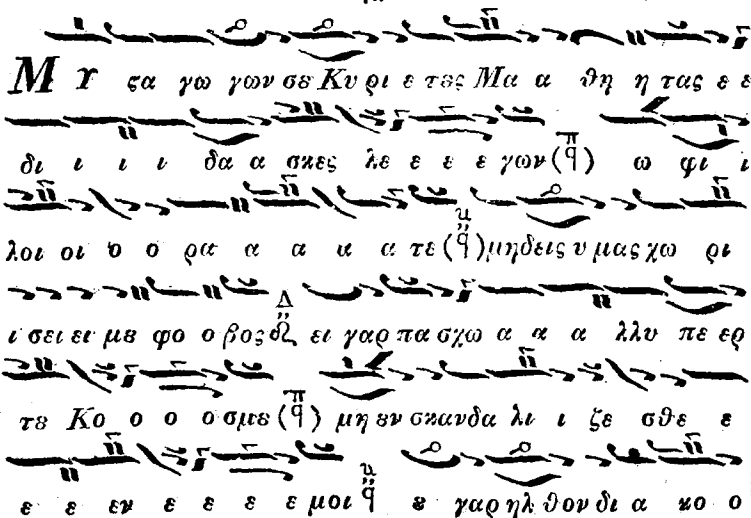 Μ Υ ςα γω γων σε Κυ ρι ε τȣς Μα α θη η τας ε ε
δι ι ι ι δα α σκες λε ε ε ε γων (π ϥ) ω φι ι
λοι οι ο ο ρα α α α α τε (ϥ) μηδεις υ μας χω ρι
ι σει ει μȣ φο ο βος Δ ει γαρ πα σχω α α α λλυ πε ερ
τȣ Κο ο ο ο σμȣ (π ϥ) μη εν σκανδα λι ι ζε σθε ε
ε ε εν ε ε ε ε μοι ϥ ȣ γαρ ηλ θον δι α κο ο